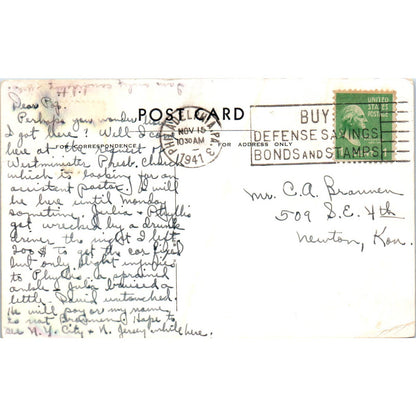 Dear Pop.
Perhaps you wonder how
I got here? Well I came
here at the request of the
Westminster Presb. Church
which is looking for an
assistant pastor. I will
be here until Monday
sometime. Julia & Phyllis
got wrecked by a drunk
driver the night I left.
200$ to get the car fixed
but only slight injuries
to Phyllis, a sprained
ankle & Julia bruised a
little. David untouched.
He will pay or my name
is not Brannen. Hope to
see N.Y. City & N. Jersey while here.
POST CARD
FOR CORRESPONDENCE
FOR ADDRESS ONLY
PHILADELPHIA, PA.
NOV 15
1030 AM
1941
BUY
DEFENSE SAVINGS
BONDS AND STAMPS
UNITED
STATES
POSTAGE
Mr. C.A. Brannen
509 S.E. 4th
Newton, Kan.